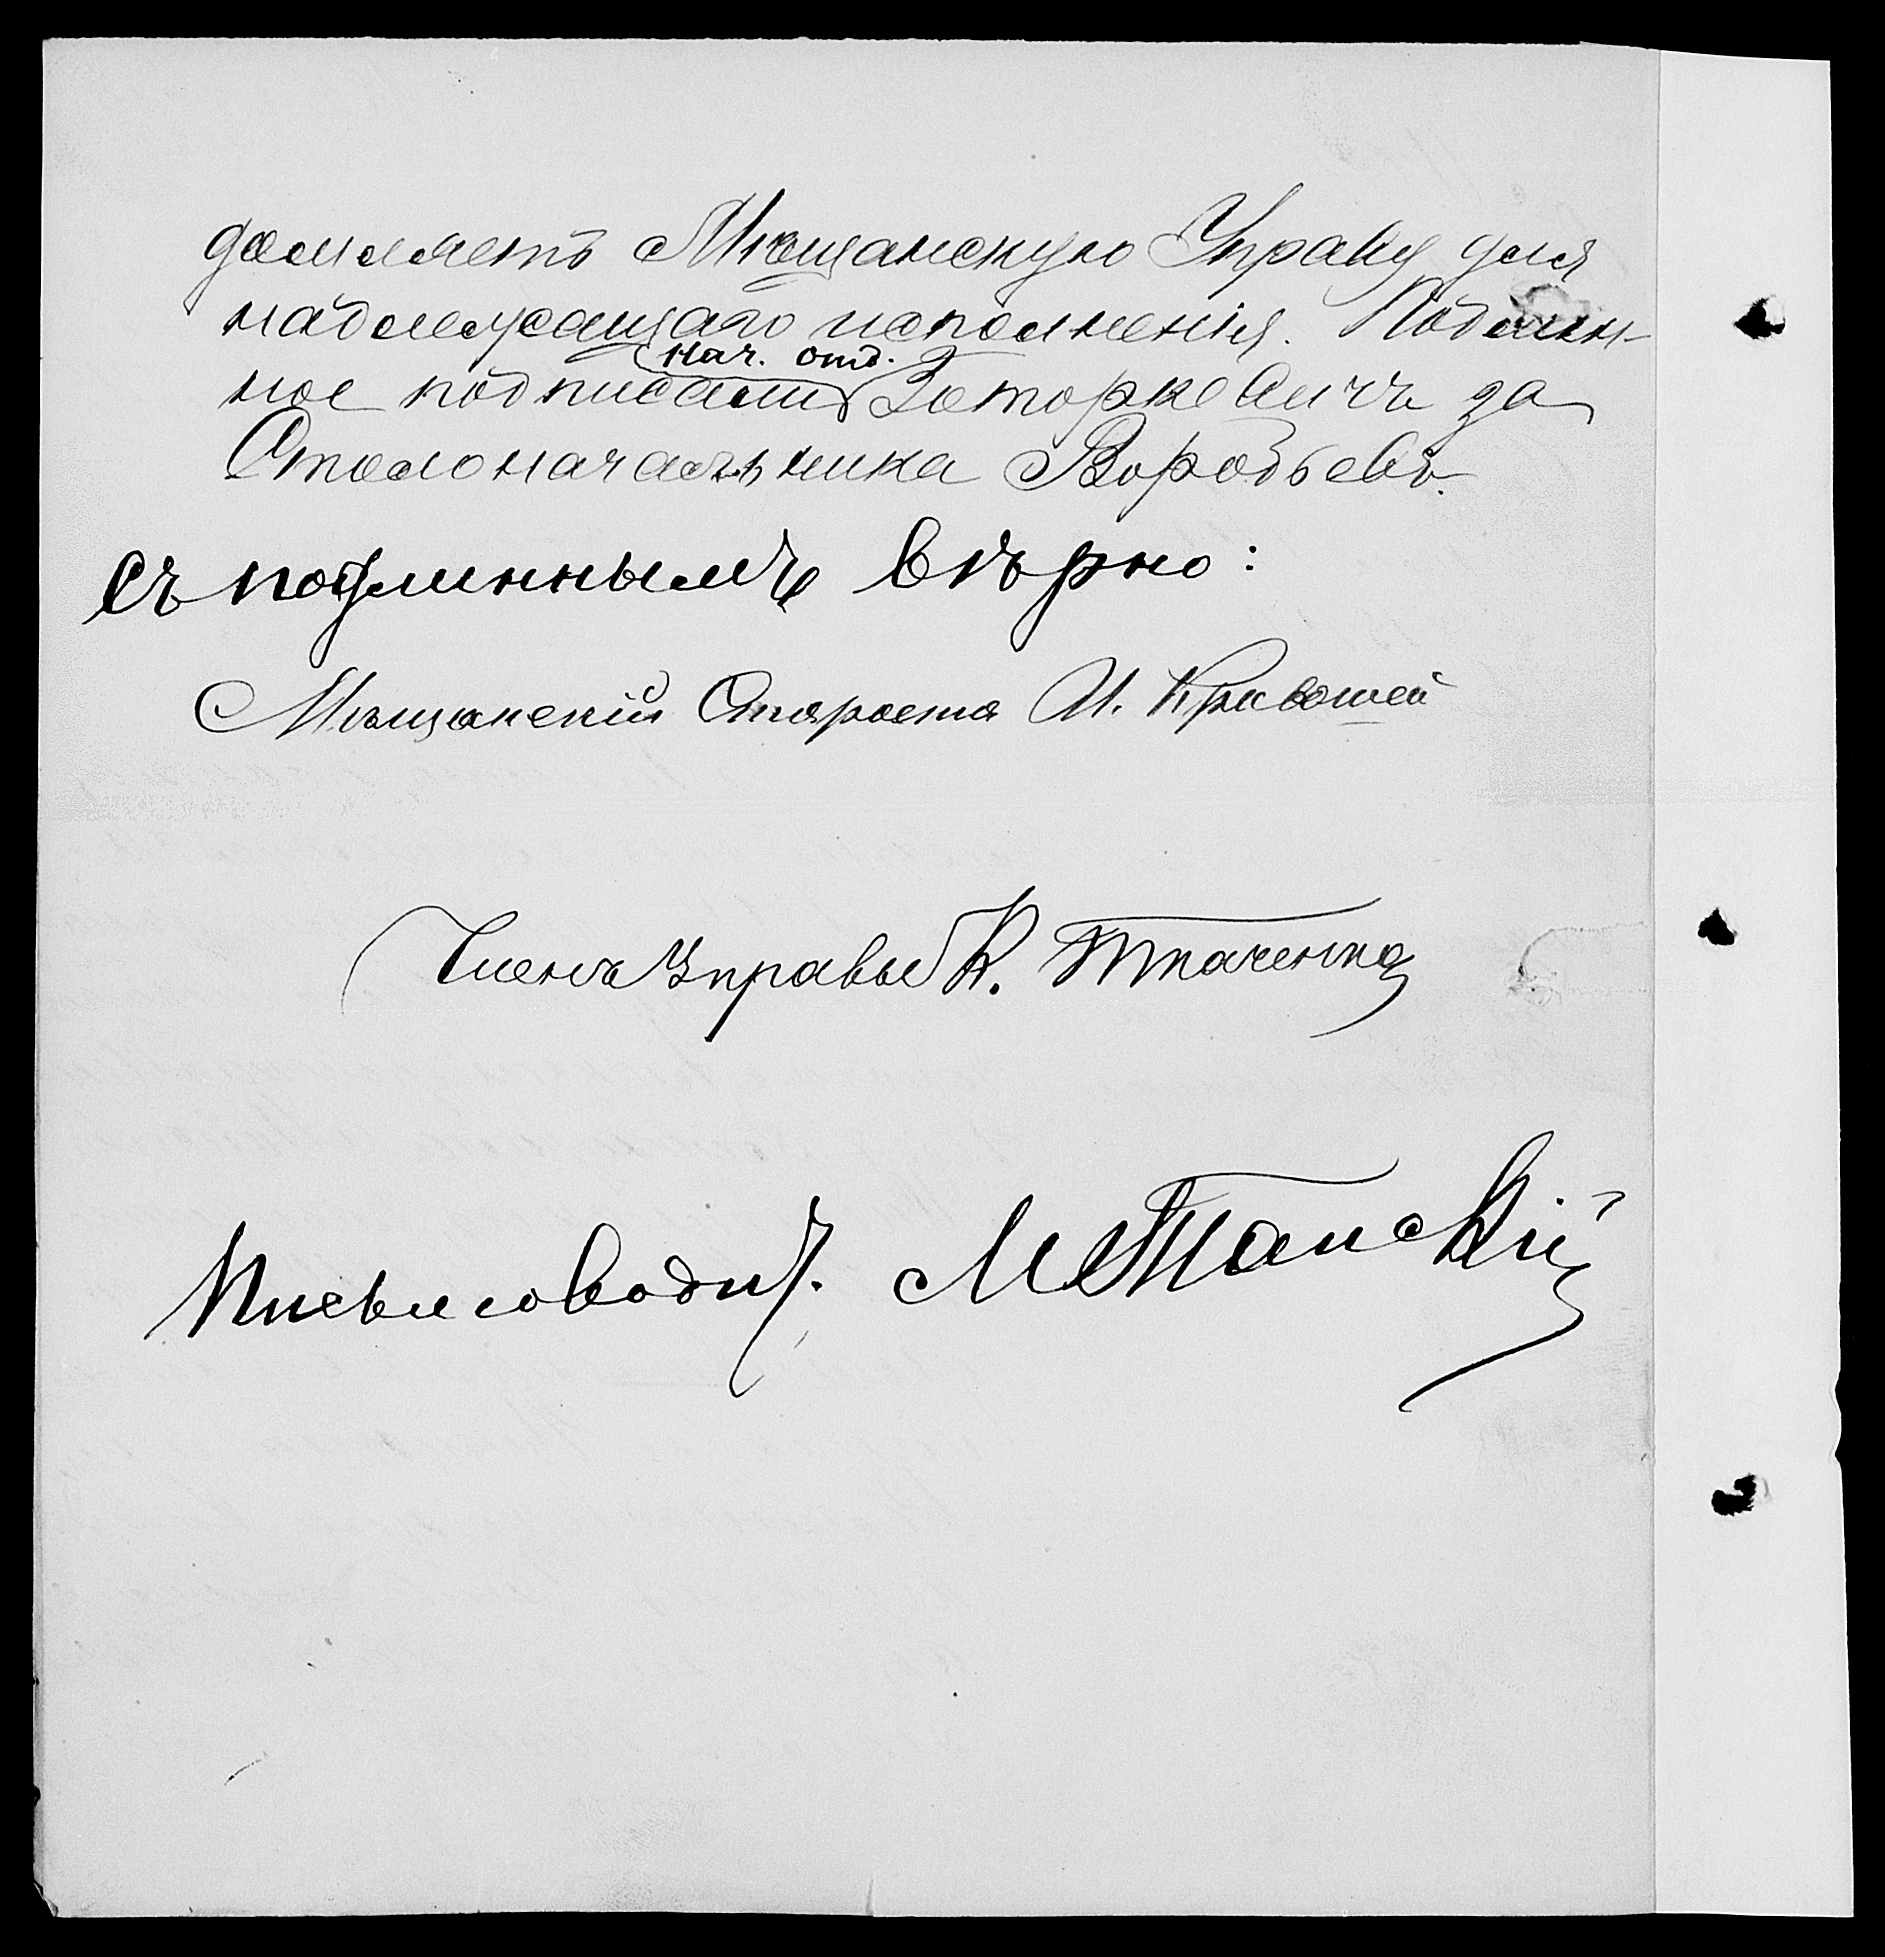 домляетъ Мѣщанскую Управу для
надлежащаго исполненія. Подлин-
нач. отд.
ное подписали Заторкевичъ за
Столоначальника Воробьевъ.
Съ подлиннымъ вѣрно:
Мѣщанскій Староста И. Кривошей
Членъ Управы К. Ткаченко
Письмоводит. М Танскій